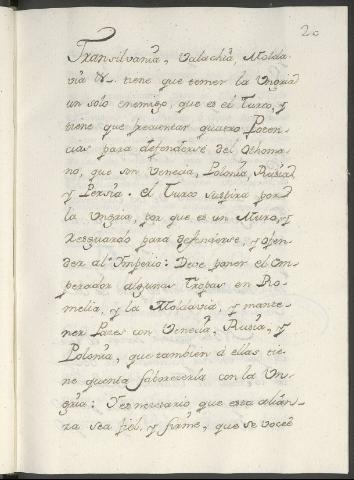 20
Transilvania, Valachia, Molda-
via &. tiene que temer la Ungria
un solo enemigo, que es el Turco, y
tiene que presentar quatro Poten-
cias para defenderse del Othoma-
no, que son Venecia, Polonia, Rusia
y Persia. el Turco suspira por
la Ungria, por que es un Muro, y
Resguardo para defenderse, y ofen-
der al Imperio: Deve poner el Em-
perador algunas tropas en Ro-
melia, y la Moldavia, y mante-
ner Pazes con Venecia, Rusia, y
Polonia, que tambien á ellas tie-
ne quenta faborecerla con la Un-
gria: Y es nesesario que esta alian-
za sea fiel, y firme, que se vocee